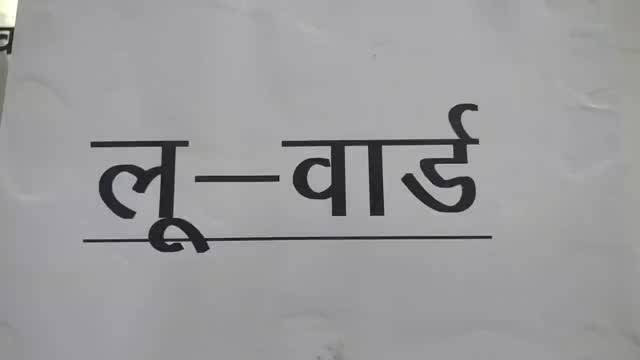 लू–वार्ड